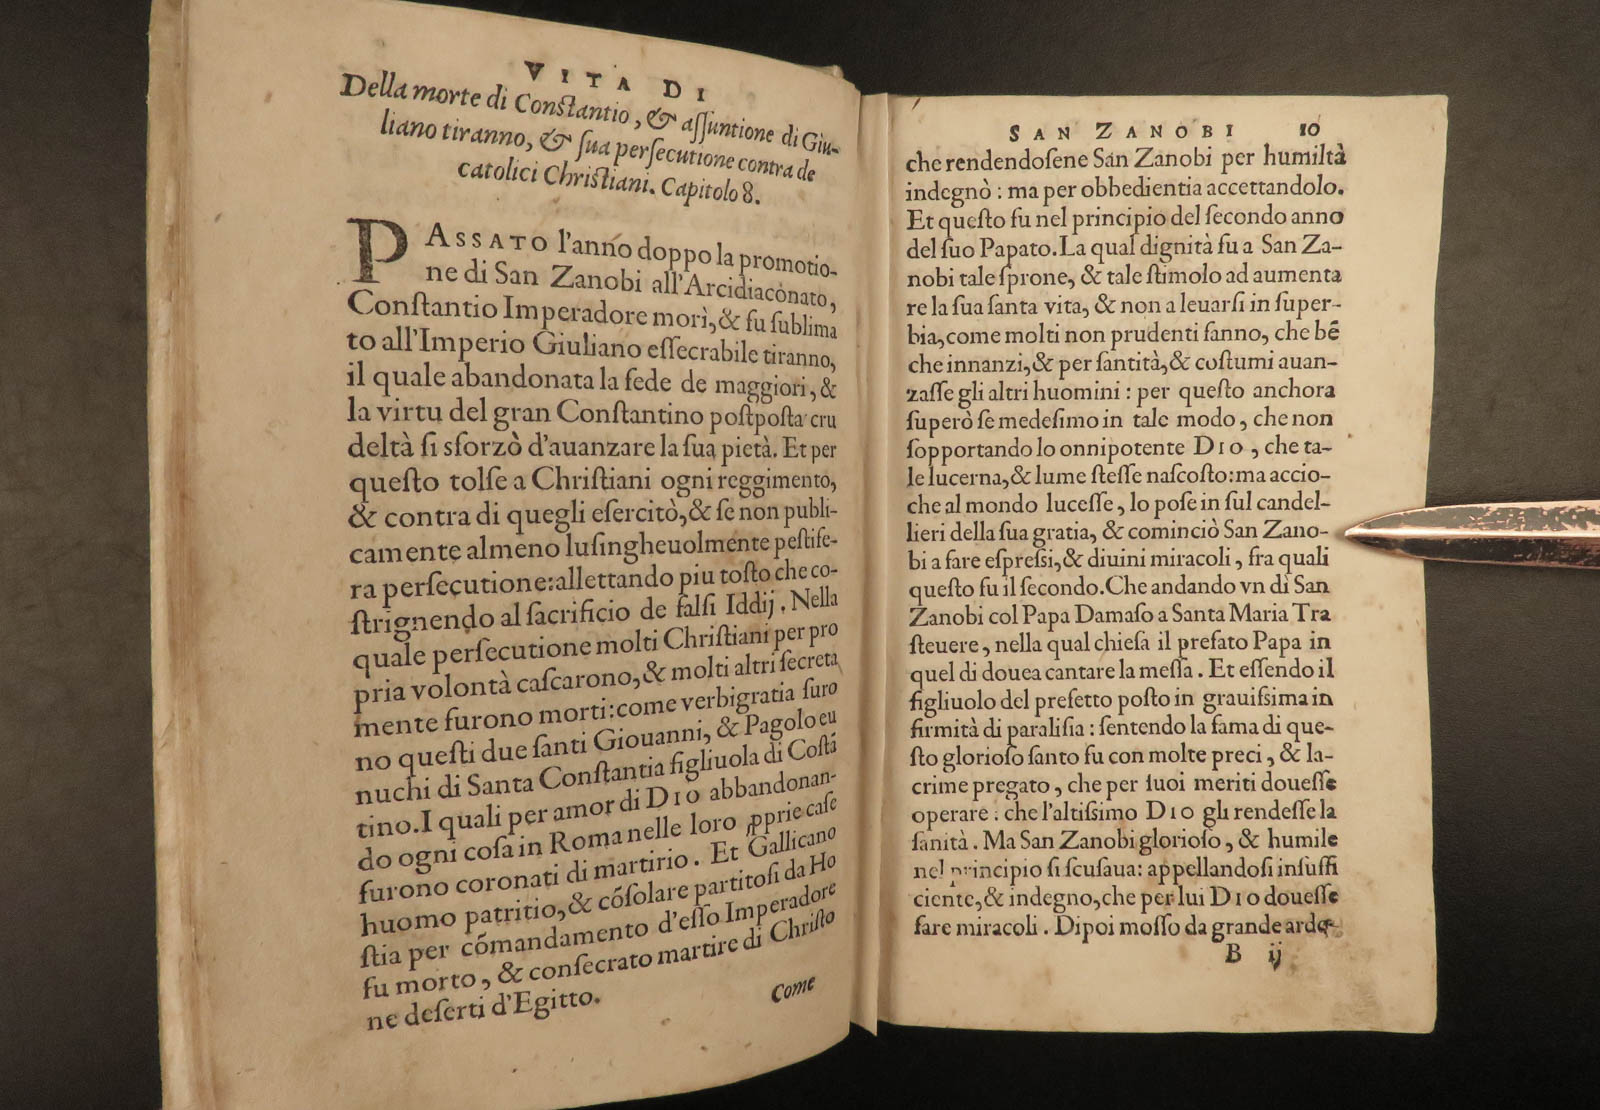 VITA DI
Della morte di Conſtantio, & aſſuntione di Giu-
liano tiranno, & ſua perſecutione contra de
catolici Chriſtiani. Capitolo 8.
PASSATO l'anno doppo la promotio-
ne di San Zanobi all'Arcidiaconato,
Conſtantio Imperadore morì,& fu ſublima
to all'Imperio Giuliano eſſecrabile tiranno,
il quale abandonata la fede de maggiori, &
la virtu del gran Conſtantino poſtpoſta cru
deltà ſi sforzò d'auanzare la ſua pietà. Et per
queſto tolſe a Chriſtiani ogni reggimento,
& contra di quegli eſercitò,& ſe non publi-
camente almeno luſingheuolmente peſtife-
ra perſecutione:allettando piu toſto che co-
ſtrignendo al ſacrificio de falſi Iddij. Nella
quale perſecutione molti Chriſtiani per pro
pria volontà caſcarono,& molti altri ſecreta
mente furono morti:come verbigratia furo
no queſti due ſanti Giouanni, & Pagolo eu
nuchi di Santa Conſtantia figliuola di Coſtā
tino.I quali per amor di DIO abbandonan-
do ogni coſa in Roma nelle loro ꝓprie caſe
furono coronati di martirio. Et Gallicano
huomo patritio,& cōſolare partitoſi da Ho
ſtia per cōmandamento d'eſſo Imperadore
fu morto, & conſecrato martire di Chriſto
ne deſerti d'Egitto.
Come
SAN ZANOBI 10
che rendendoſene San Zanobi per humiltà
indegnò : ma per obbedientia accettandolo.
Et queſto fu nel principio del ſecondo anno
del ſuo Papato.La qual dignità fu a San Za-
nobi tale ſprone, & tale ſtimolo ad aumenta
re la ſua ſanta vita, & non a leuarſi in ſuper-
bia,come molti non prudenti fanno, che bē
che innanzi,& per ſantità,& coſtumi auan-
zaſſe gli altri huomini : per queſto anchora
ſuperò ſe medeſimo in tale modo, che non
ſopportando lo onnipotente DIO, che ta-
le lucerna,& lume ſteſſe naſcoſto:ma accio-
che al mondo luceſſe, lo poſe in ſul candel-
lieri della ſua gratia, & cominciò San Zano-
bi a fare eſpreſſi,& diuini miracoli, fra quali
queſto fu il ſecondo.Che andando vn dì San
Zanobi col Papa Damaſo a Santa Maria Tra
ſteuere, nella qual chieſa il prefato Papa in
quel di douea cantare la meſſa. Et eſſendo il
figliuolo del prefetto poſto in grauiſsima in
firmità di paraliſia : ſentendo la fama di que-
ſto glorioſo ſanto fu con molte preci, & la-
crime pregato, che per ſuoi meriti doueſſe
operare : che l'altiſsimo DIO gli rendeſſe la
ſanità. Ma San Zanobi glorioſo, & humile
nel principio ſi ſcuſaua: appellandoſi inſuffi
ciente,& indegno,che per lui DIO doueſſe
fare miracoli. Dipoi moſſo da grande ardo-
B ij